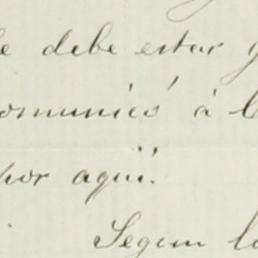 debe estar
comunicó à
por aquí.
Segun